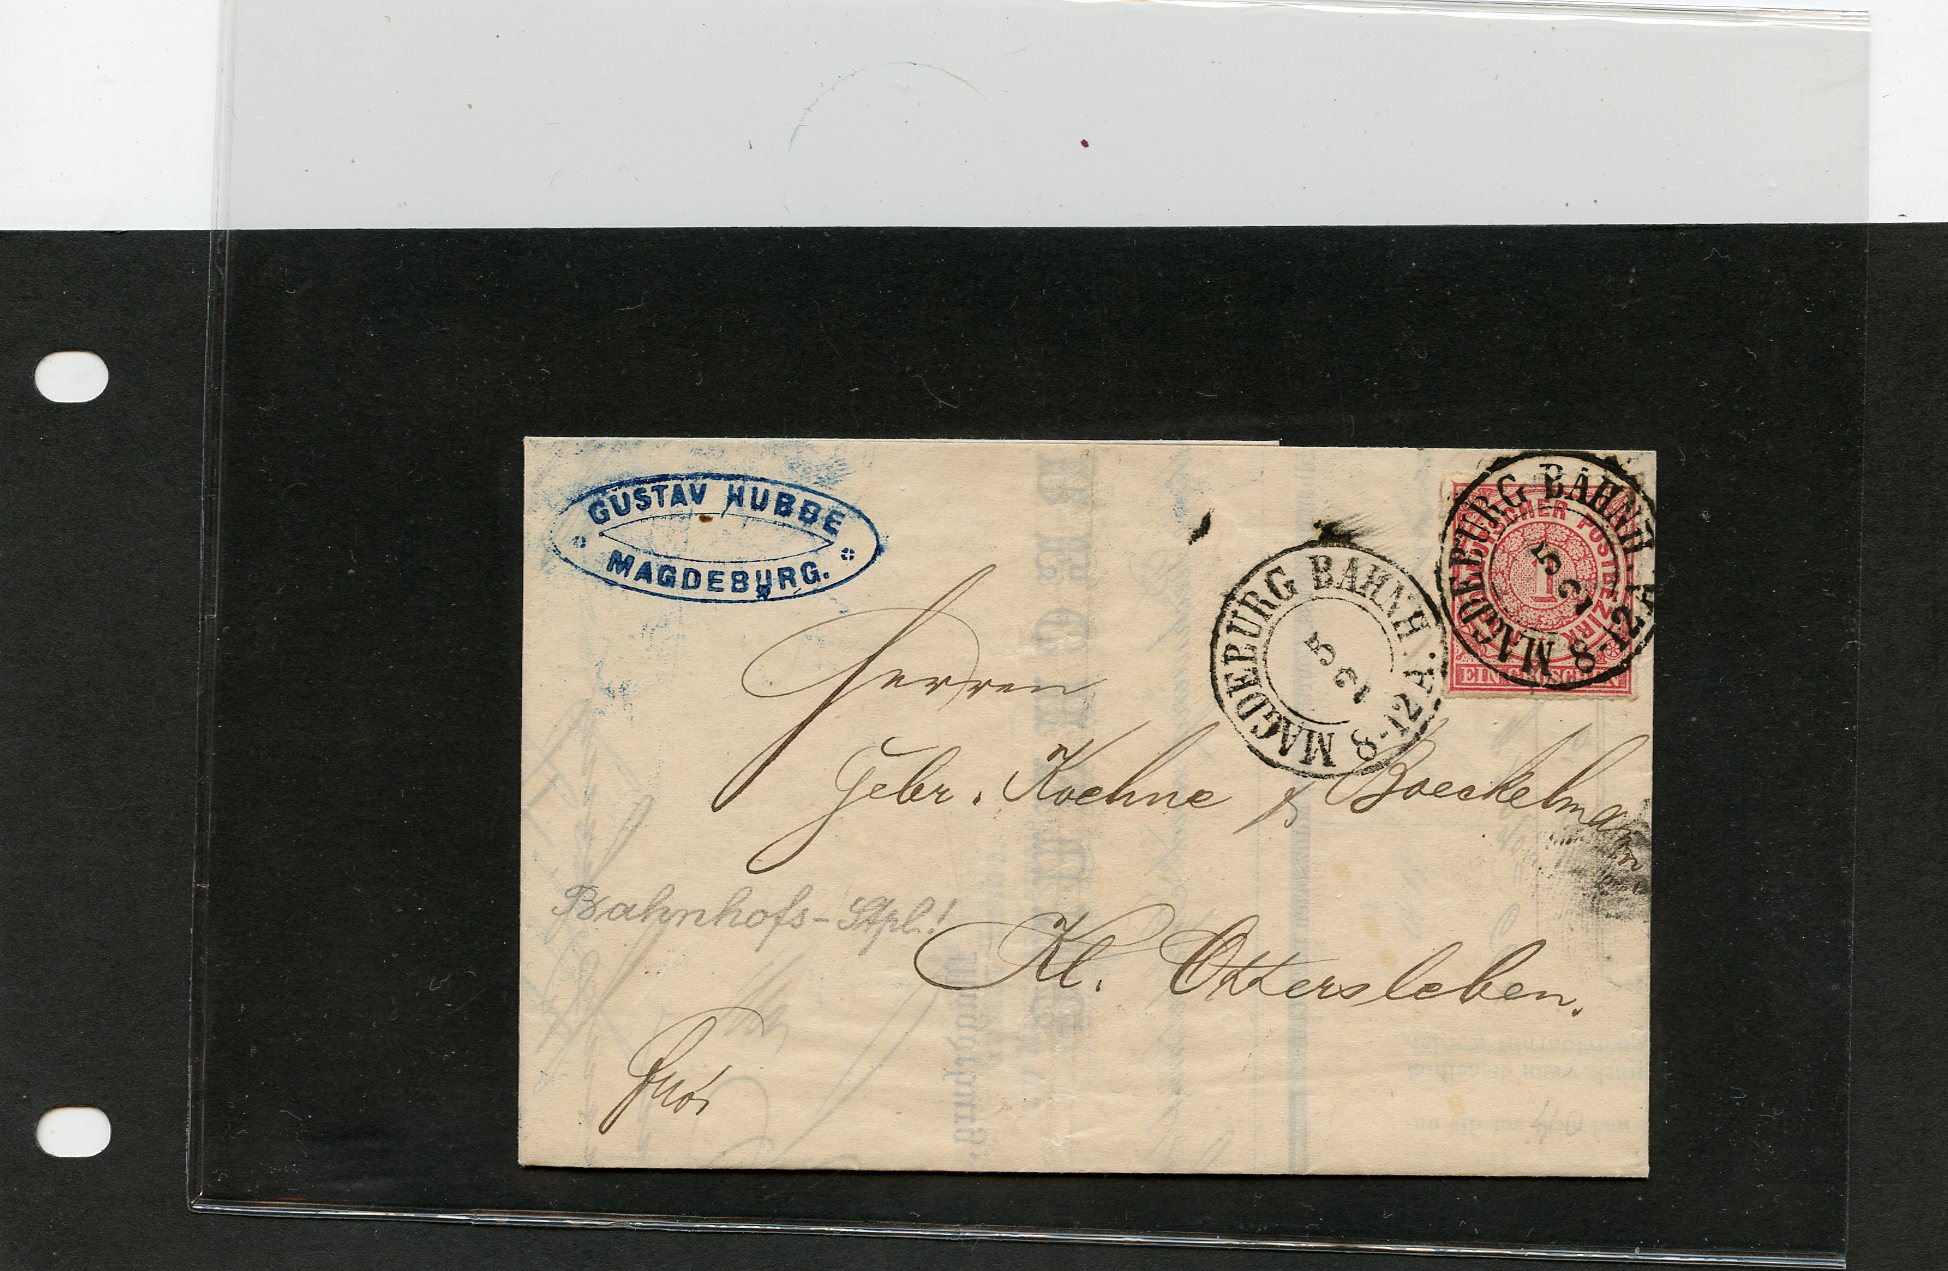 GUSTAV HUBBE
MAGDEBURG.
MAGDEBURG BAHNH.
5
2
8-12 A.
NORDDEUTSCHER POSTBEZIRK
1
EIN GROSCHEN
MAGDEBURG BAHNH.
5 2
8-12 A.
Herren
Gebr. Koehne & Boeckelmann
Bahnhofs-Stpl.!
Kl. Ottersleben.